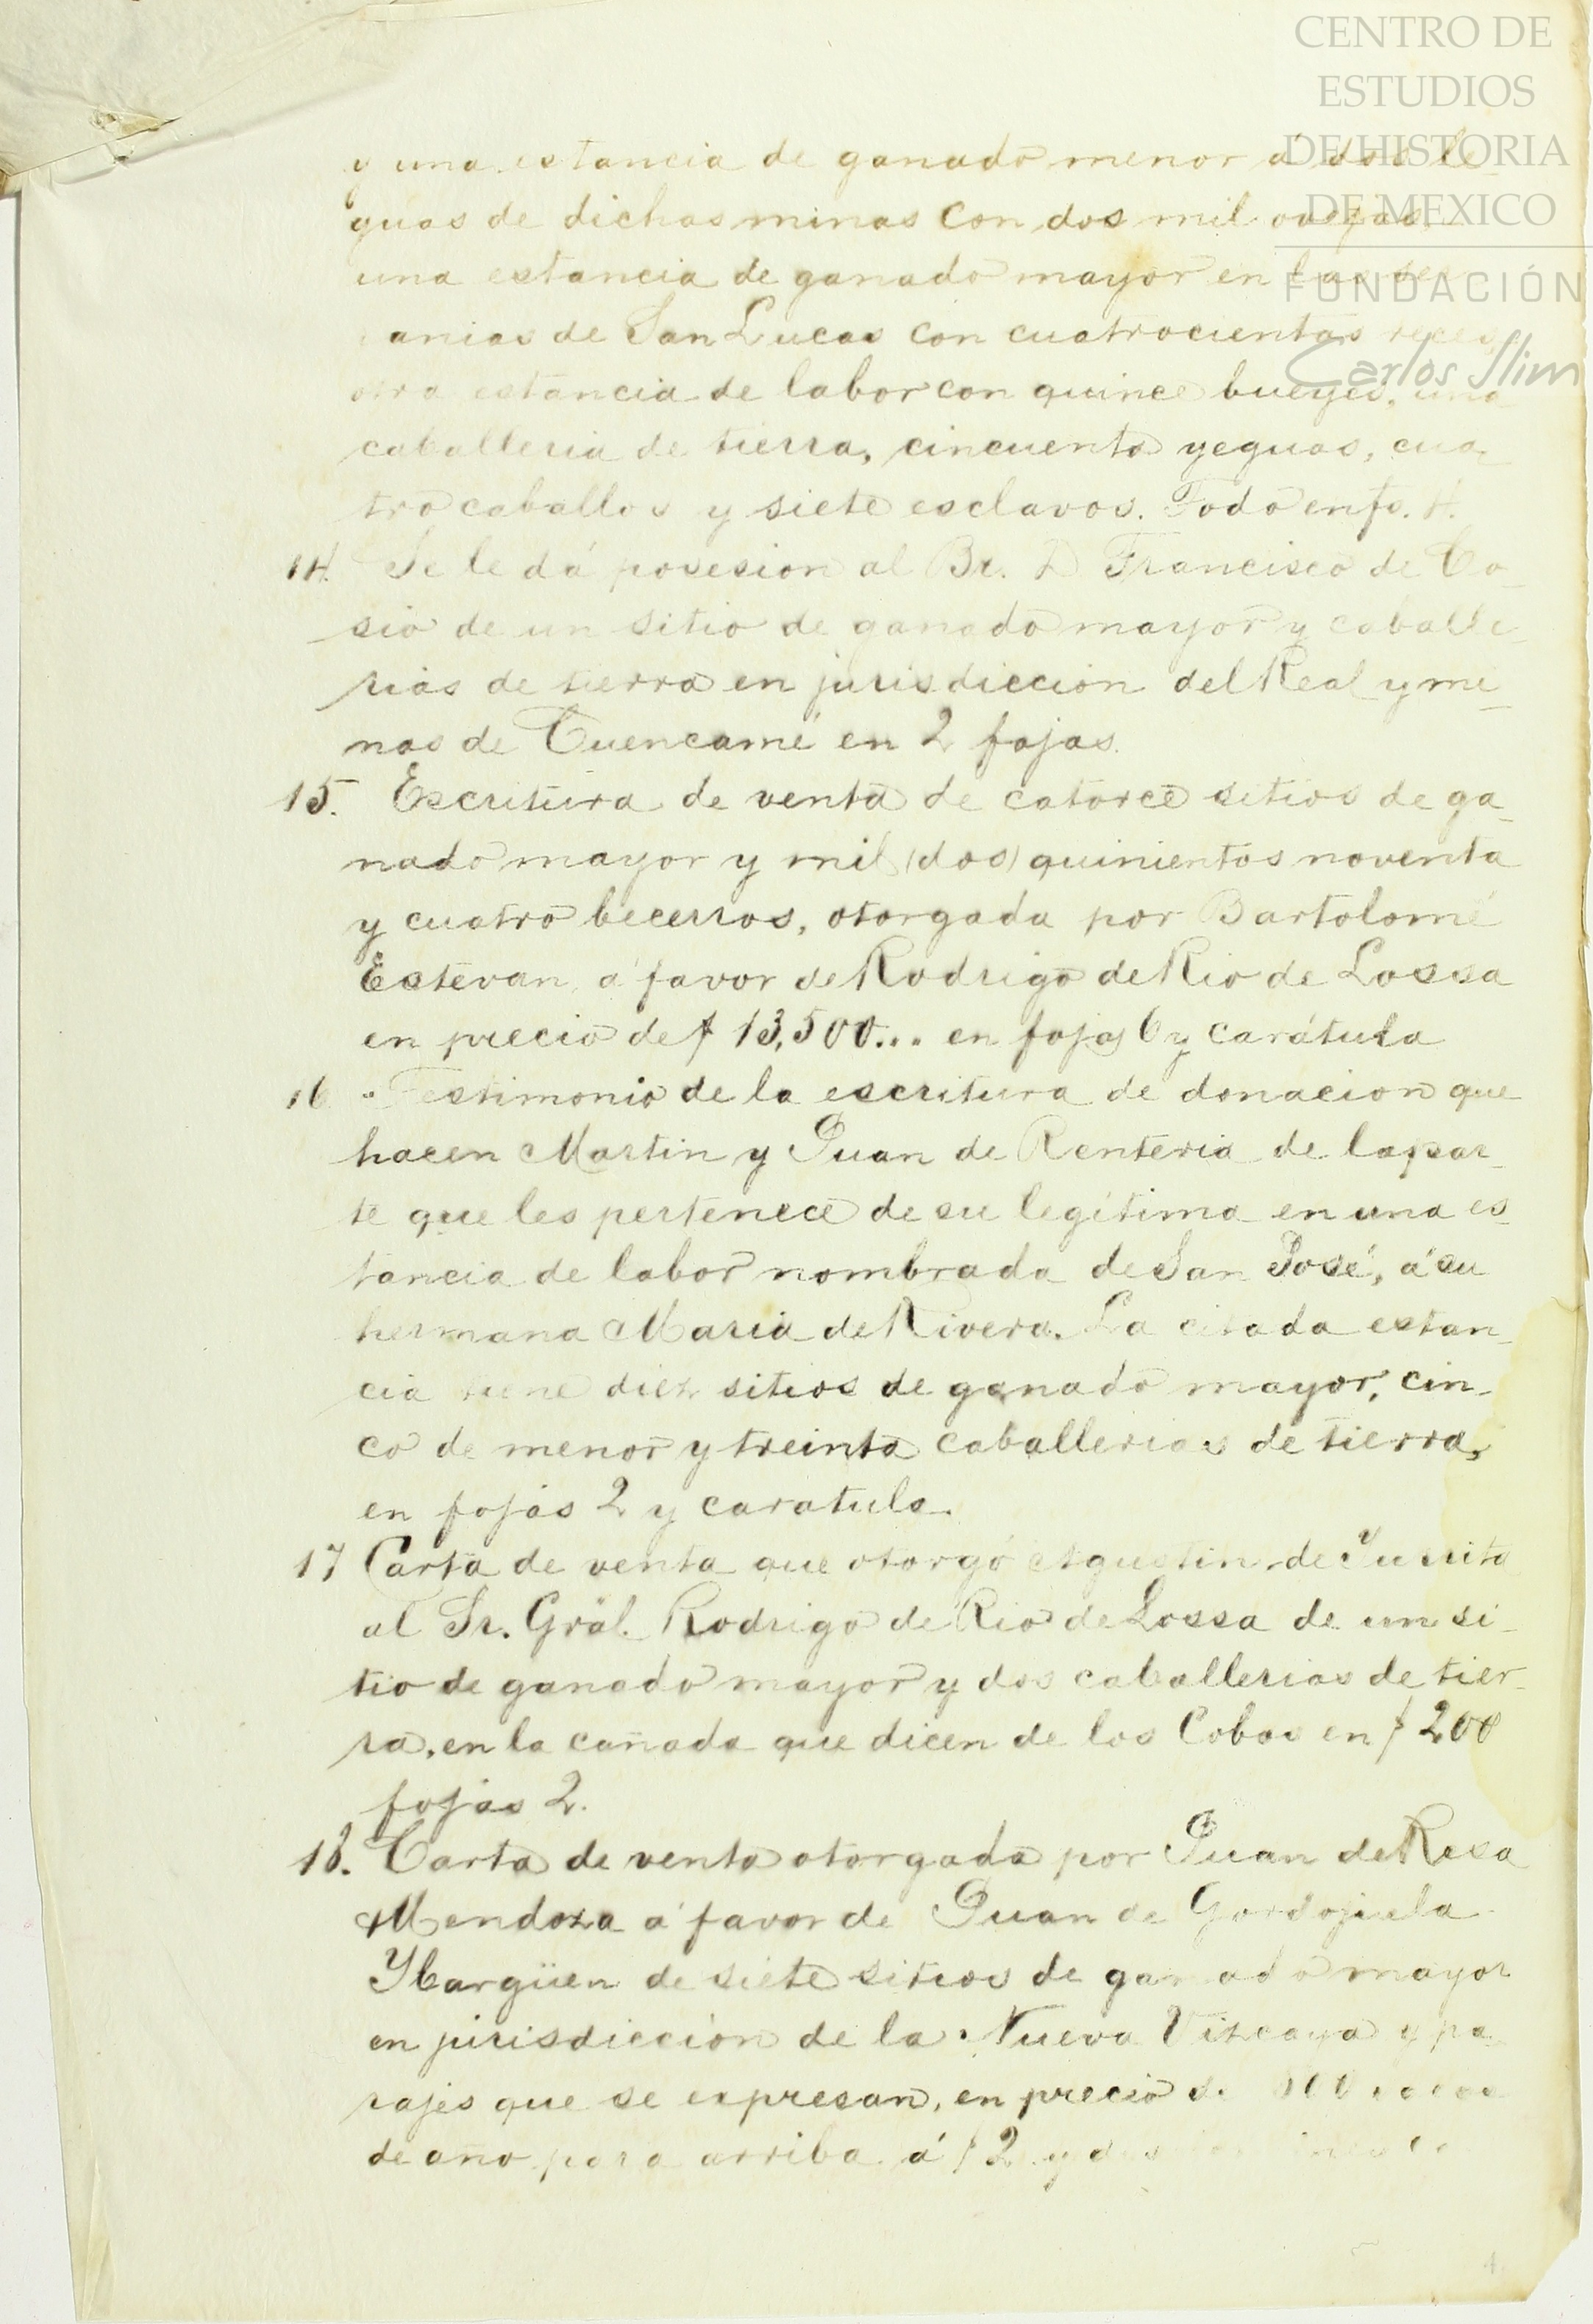 CENTRO DE
ESTUDIOS
DE HISTORIA
DE MEXICO
FUNDACIÓN
Carlos Slim
y una estancia de ganado menor á dos le
guas de dichas minas con dos mil ovejas
una estancia de ganado mayor en las
anias de San Lucas con cuatrocientas reces
otra estancia de labor con quince bueyes, una
caballeria de tierra, cincuenta yeguas, cua
tro caballos y siete esclavos. Todo en fs. 4.
14. Se le dá posesion al Br. D Francisco de Co_
sio de un sitio de ganado mayor y caballe_
rias de tierra en jurisdiccion del Real y mi_
nas de Cuencamé en 2 fojas.
15. Escritura de venta de catorce sitios de ga_
nado mayor y mil (dos) quinientos noventa
y cuatro becerros, otorgada por Bartolomé
Estevan á favor de Rodrigo de Rio de Lossa
en precio de $ 13,500... en fojas 6 y carátula
16 Testimonio de la escritura de donacion que
hacen Martin y Juan de Renteria de la par_
te que les pertenece de su legítima en una es_
tancia de labor nombrada de San José, á su
hermana Maria de Rivera. La citada estan_
cia tiene diez sitios de ganado mayor, cin_
co de menor y treinta caballerias de tierra,
en fojas 2 y caratula.
17 Carta de venta que otorgó Agustin de
al Sr. Gral. Rodrigo de Rio de Lossa de un si_
tio de ganado mayor y dos caballerias de tier_
ra, en la cañada que dicen de los Cobos en $ 200
fojas 2.
18. Carta de venta otorgada por Juan de Resa
Mendoza á favor de Juan de Gordojuela
Ybargüen de siete sitios de ganado mayor
en jurisdiccion de la Nueva Vizcaya y pa_
rajes que se expresan, en precio
de año para arriba á $ 2 y